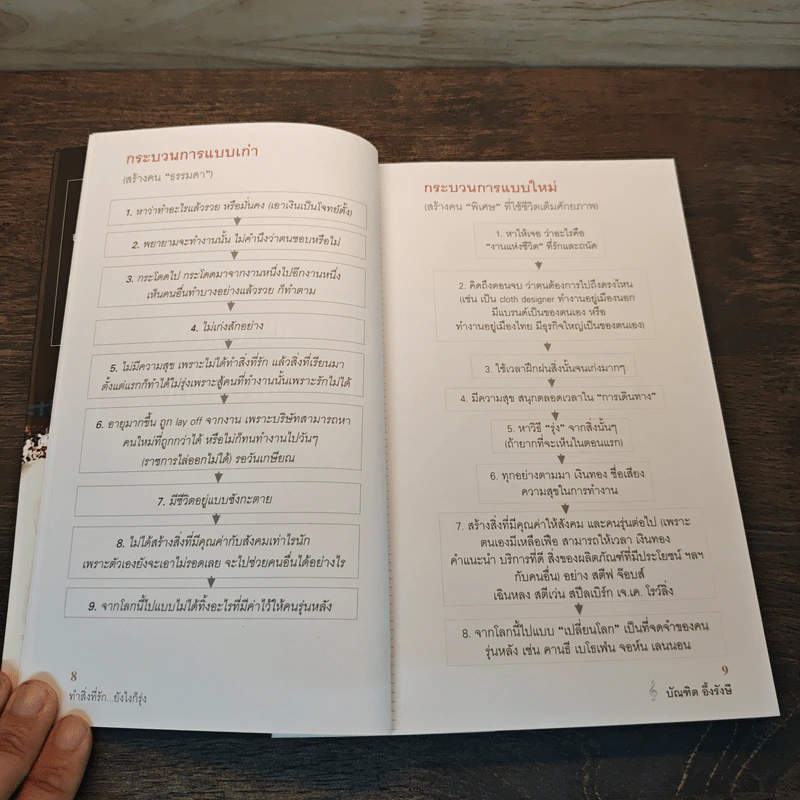 กระบวนการแบบเก่า
(สร้างคน "ธรรมดา")
1. หาว่าทำอะไรแล้วรวย หรือมั่นคง (เอาเงินเป็นโจทย์ตั้ง)
2. พยายามจะทำงานนั้น ไม่คำนึงว่าตนชอบหรือไม่
3. กระโดดไป กระโดดมาจากงานหนึ่งไปอีกงานหนึ่ง
เห็นคนอื่นทำบางอย่างแล้วรวย ก็ทำตาม
4. ไม่เก่งสักอย่าง
5. ไม่มีความสุข เพราะไม่ได้ทำสิ่งที่รัก แล้วสิ่งที่เรียนมา
ตั้งแต่แรกก็ทำได้ไม่รุ่งเพราะสู้คนที่ทำงานนั้นเพราะรักไม่ได้
6. อายุมากขึ้น ถูก lay off จากงาน เพราะบริษัทสามารถหา
คนใหม่ที่ถูกกว่าได้ หรือไม่ก็ทนทำงานไปวันๆ
(ราชการไล่ออกไม่ได้) รอวันเกษียณ
7. มีชีวิตอยู่แบบซังกะตาย
8. ไม่ได้สร้างสิ่งที่มีคุณค่ากับสังคมเท่าไรนัก
เพราะตัวเองยังจะเอาไม่รอดเลย จะไปช่วยคนอื่นได้อย่างไร
9. จากโลกนี้ไปแบบไม่ได้ทิ้งอะไรที่มีค่าไว้ให้คนรุ่นหลัง
8
ทำสิ่งที่รัก...ยังไงก็รุ่ง
กระบวนการแบบใหม่
(สร้างคน "พิเศษ" ที่ใช้ชีวิตเต็มศักยภาพ)
1. หาให้เจอ ว่าอะไรคือ
"งานแห่งชีวิต" ที่รักและถนัด
2. คิดถึงตอนจบ ว่าตนต้องการไปถึงตรงไหน
(เช่น เป็น cloth designer ทำงานอยู่เมืองนอก
มีแบรนด์เป็นของตนเอง หรือ
ทำงานอยู่เมืองไทย มีธุรกิจใหญ่เป็นของตนเอง)
3. ใช้เวลาฝึกฝนสิ่งนั้นจนเก่งมากๆ
4. มีความสุข สนุกตลอดเวลาใน "การเดินทาง"
5. หาวิธี "รุ่ง" จากสิ่งนั้นๆ
(ถ้ายากที่จะเห็นในตอนแรก)
6. ทุกอย่างตามมา เงินทอง ชื่อเสียง
ความสุขในการทำงาน
7. สร้างสิ่งที่มีคุณค่าให้สังคม และคนรุ่นต่อไป (เพราะ
ตนเองมีเหลือเฟือ สามารถให้เวลา เงินทอง
คำแนะนำ บริการที่ดี สิ่งของผลิตภัณฑ์ที่มีประโยชน์ ฯลฯ
กับคนอื่น) อย่าง สตีฟ จ๊อบส์
เฉินหลง สตีเว่น สปีลเบิร์ก เจ.เค. โรว์ลิ่ง
8. จากโลกนี้ไปแบบ "เปลี่ยนโลก" เป็นที่จดจำของคน
รุ่นหลัง เช่น คานธี เบโธเฟ่น จอห์น เลนนอน
9
บัณฑิต อึ้งรังษี